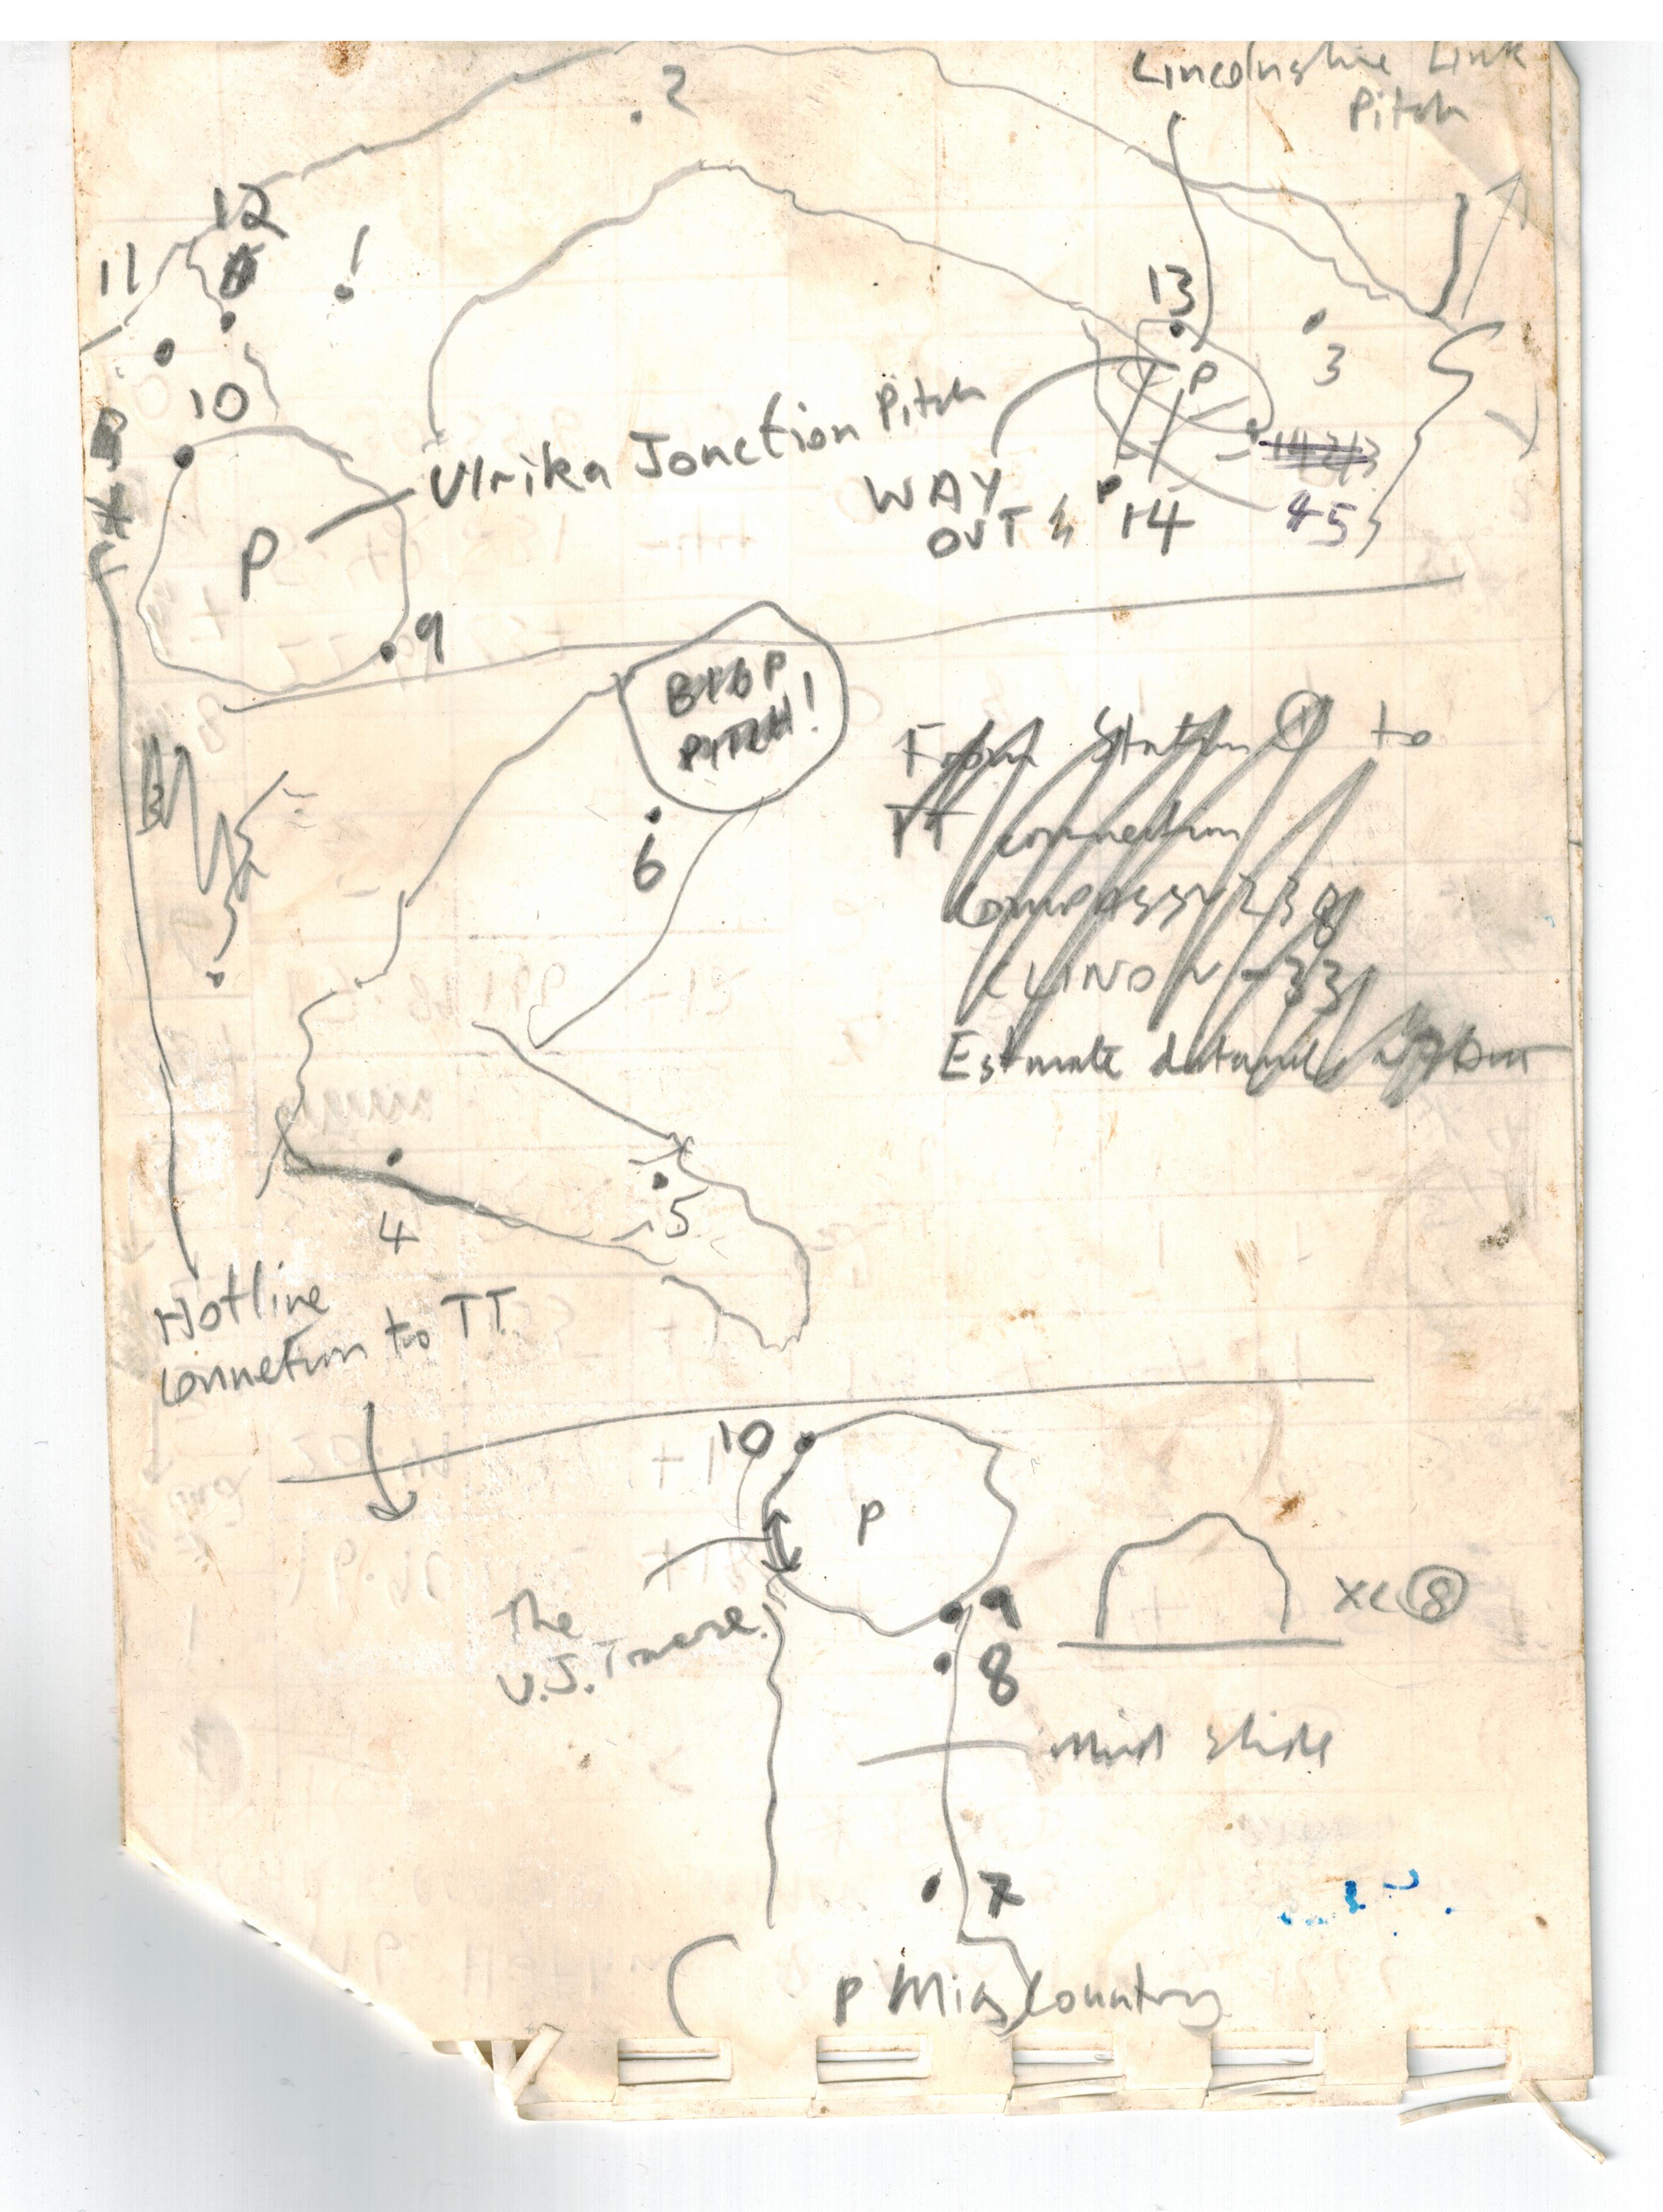 Lincolnshire Link
Pitch
2
12
11
1
13
3
10
P
Ulrika Jonction Pitch
WAY
OUT
14
45
P
9
BIG P
PITCH!
From Station 1 to
TT connection
COMPASS 238
CLINO -33
Estimate
6
4
5
Hotline
Connection to TT
10
P
The
U.J. Traverse
9
8
XC 8
Mud slide
7
P Mig Country